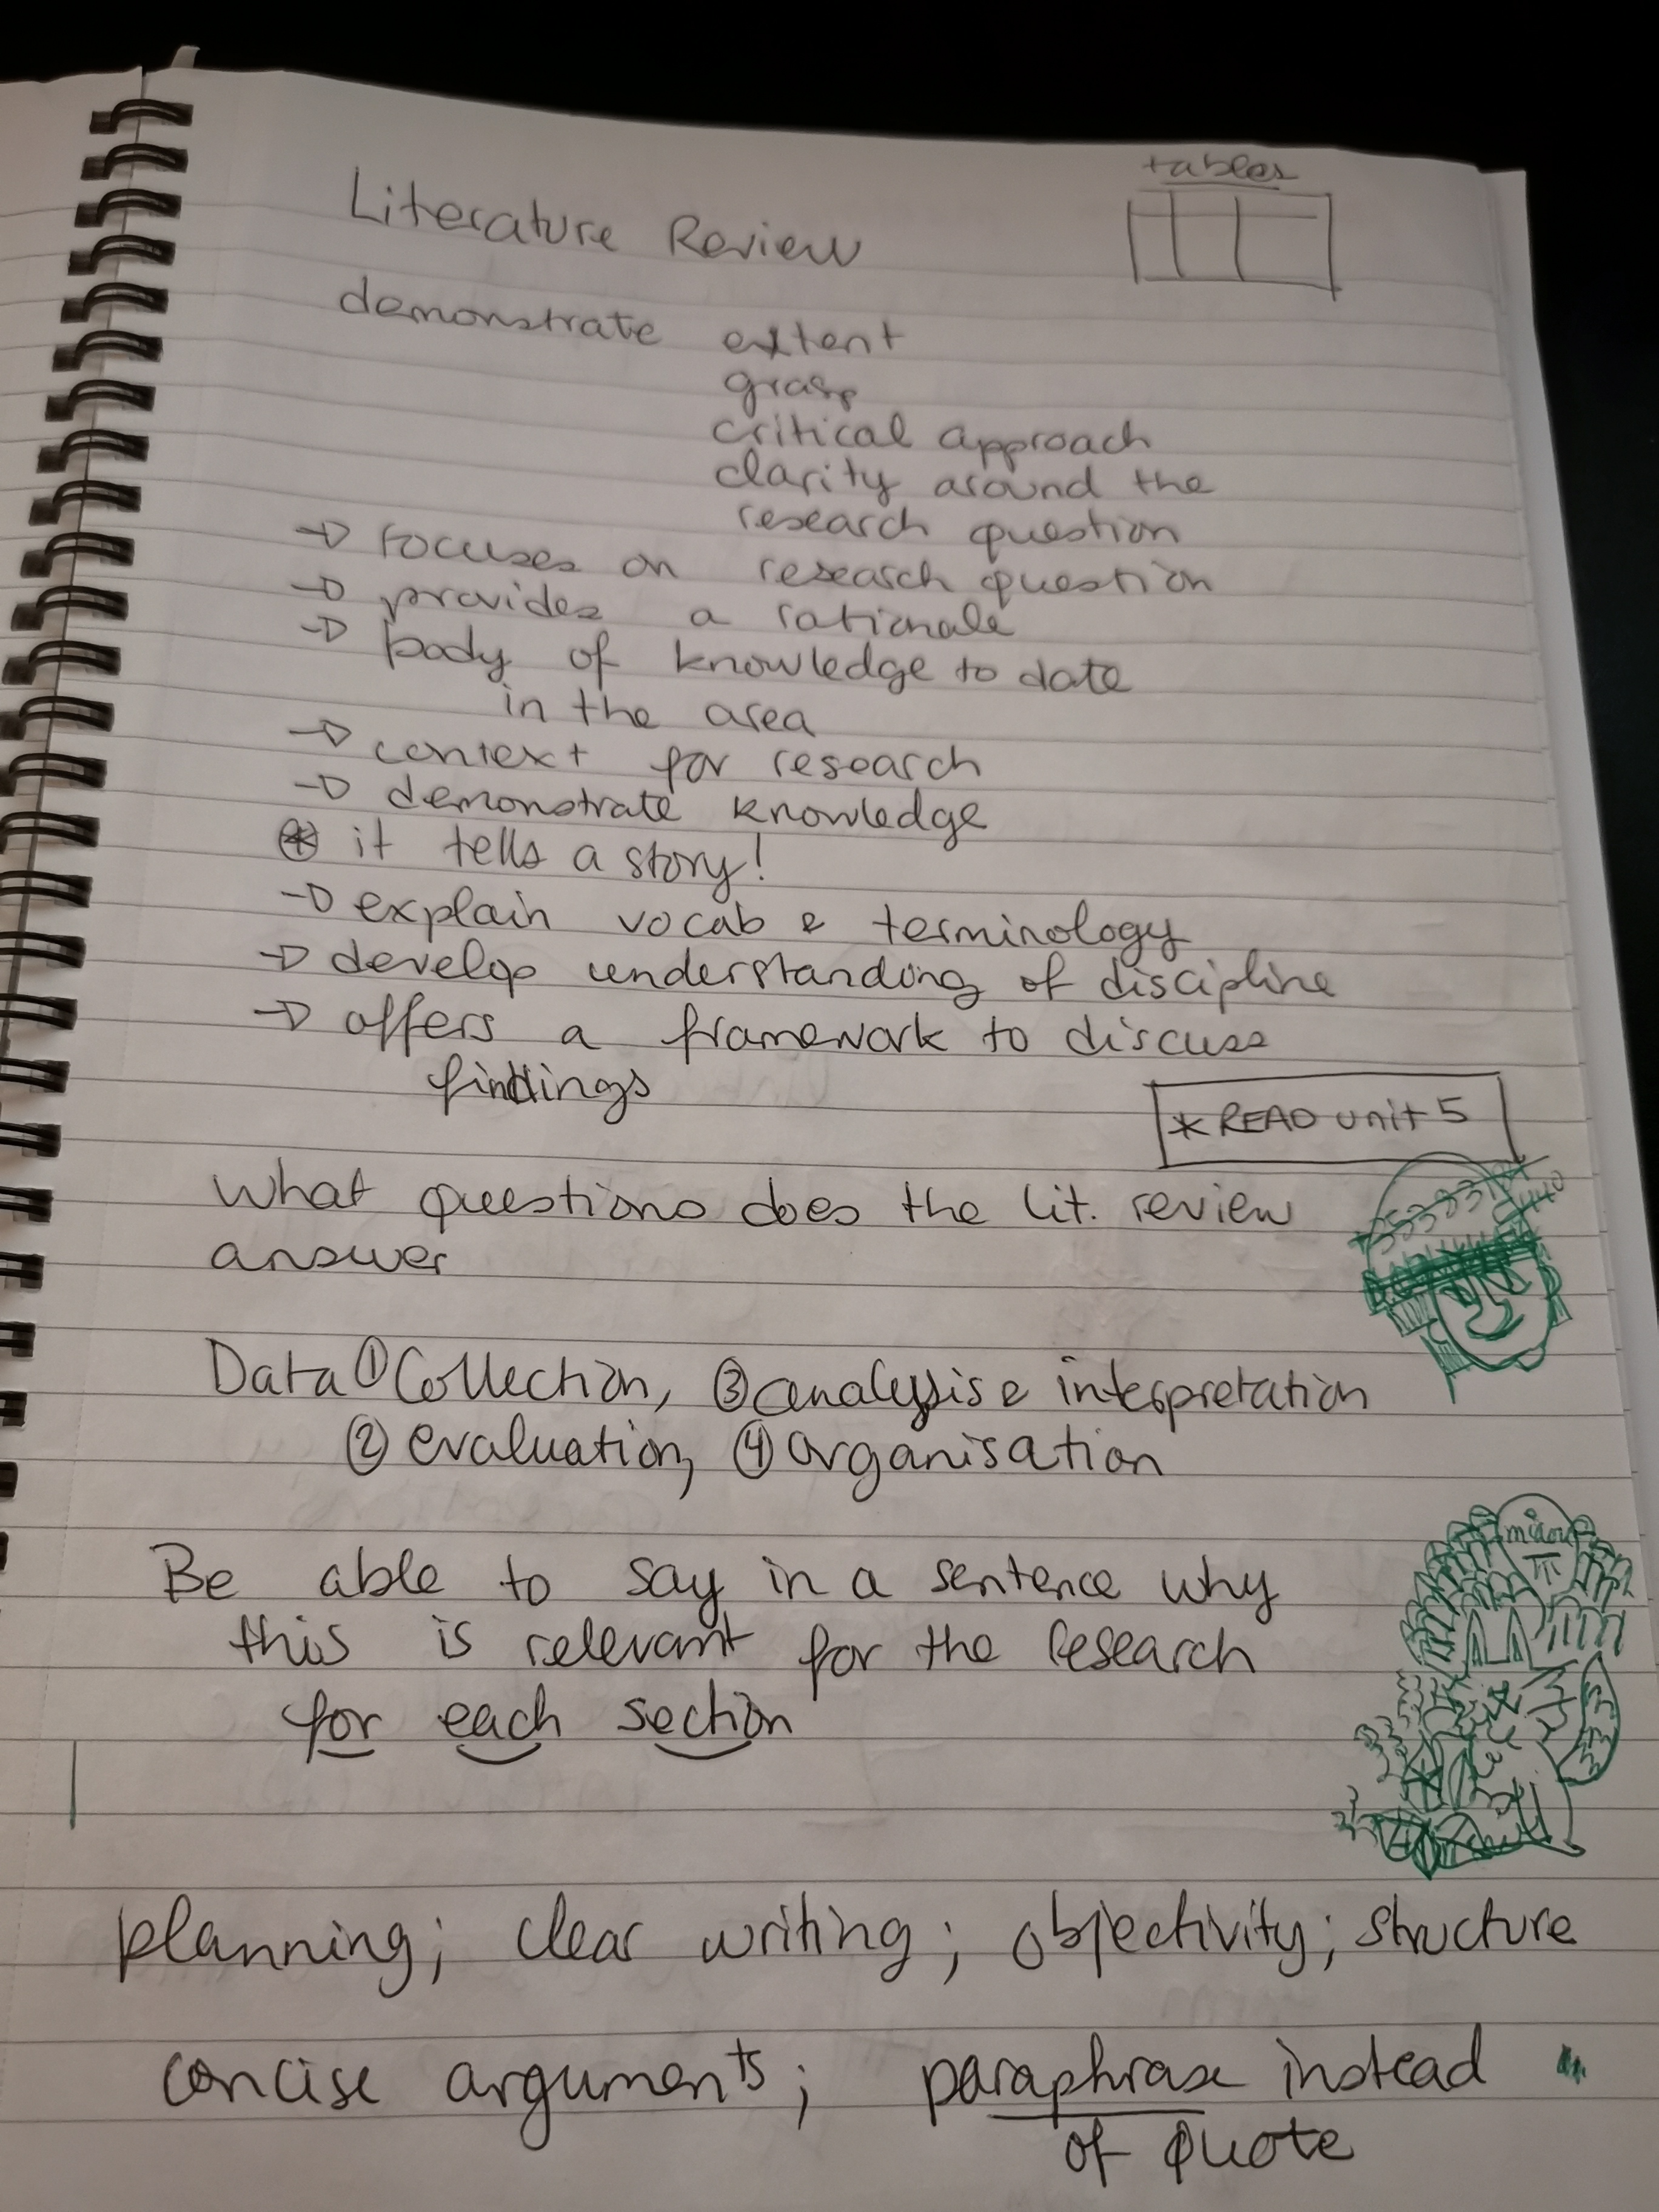 tables
Literature Review
demonstrate extent
grasp
critical approach
clarity around the
research question
→ focuses on research question
→ provides a rationale
→ body of knowledge to date
in the area
→ context for research
→ demonstrate knowledge
⊛ it tells a story!
→ explain vocab & terminology
→ develop understanding of discipline
→ offers a framework to discuss
findings
* READ unit 5
What questions does the lit. review
answer
Data ① Collection, ③ analysis & interpretation
② evaluation, ④ organisation
miaou
Be able to say in a sentence why
this is relevant for the research
for each section
planning; clear writing; objectivity; structure
concise arguments; paraphrase instead
of quote